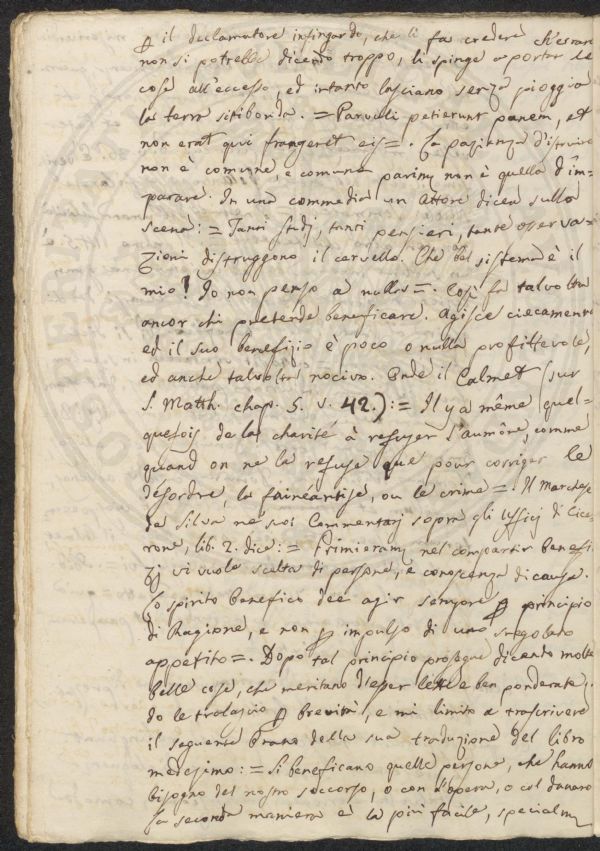 ꝑ il declamatore infingardo, che li fa credere ch'errare
non si potrebbe dicendo troppo, li spinge a portar le
cose all'eccesso, ed intanto lasciano senza pioggia
la terra sitibonda. = Parvuli petierunt panem, et
non erat qui frangeret eis =. La pazienza d'istruire
non è comune, e comune parim. non è quella d'im-
parare. In una commedia un Attore dicea sulla
scena: = Tanti studj, tanti pensieri, tante osserva-
zioni distruggono il cervello. Che bel sistema è il
mio! Io non penso a nulla =. Così fa talvolta
ancor chi pretende beneficare. Agisce ciecamente
ed il suo benefizio è poco o nulla profittevole,
ed anche talvolta nocivo. Onde il Calmet (sur
S. Matth. chap. 5. v. 42.): = Il y a même quel-
quefois de la charité à refuser l'aumône, comme
quand on ne la refuse que pour corriger le
désordre, la fainéantise, ou le crime =. Il Marchese
da Silva ne' suoi Commentarj sopra gli Uffizj di Cice-
rone, lib. 2. dice: = Primieram. nel compartir benefi-
zj vi vuole scelta di persone, e conoscenza di cause.
Lo spirito benefico dee agir sempre ꝑ principio
di Ragione, e non ꝑ impulso di uno sregolato
appetito =. Dopo tal principio prosegue dicendo molte
belle cose, che meritano d'esser lette e ben ponderate;
Io le tralascio ꝑ brevità, e mi limito a trascrivere
il seguente brano della sua traduzione del libro
medesimo: = Si beneficano quelle persone, che hanno
bisogno del nostro soccorso, o con l'opera, o col danaro
la seconda maniera è la più facile, specialm.